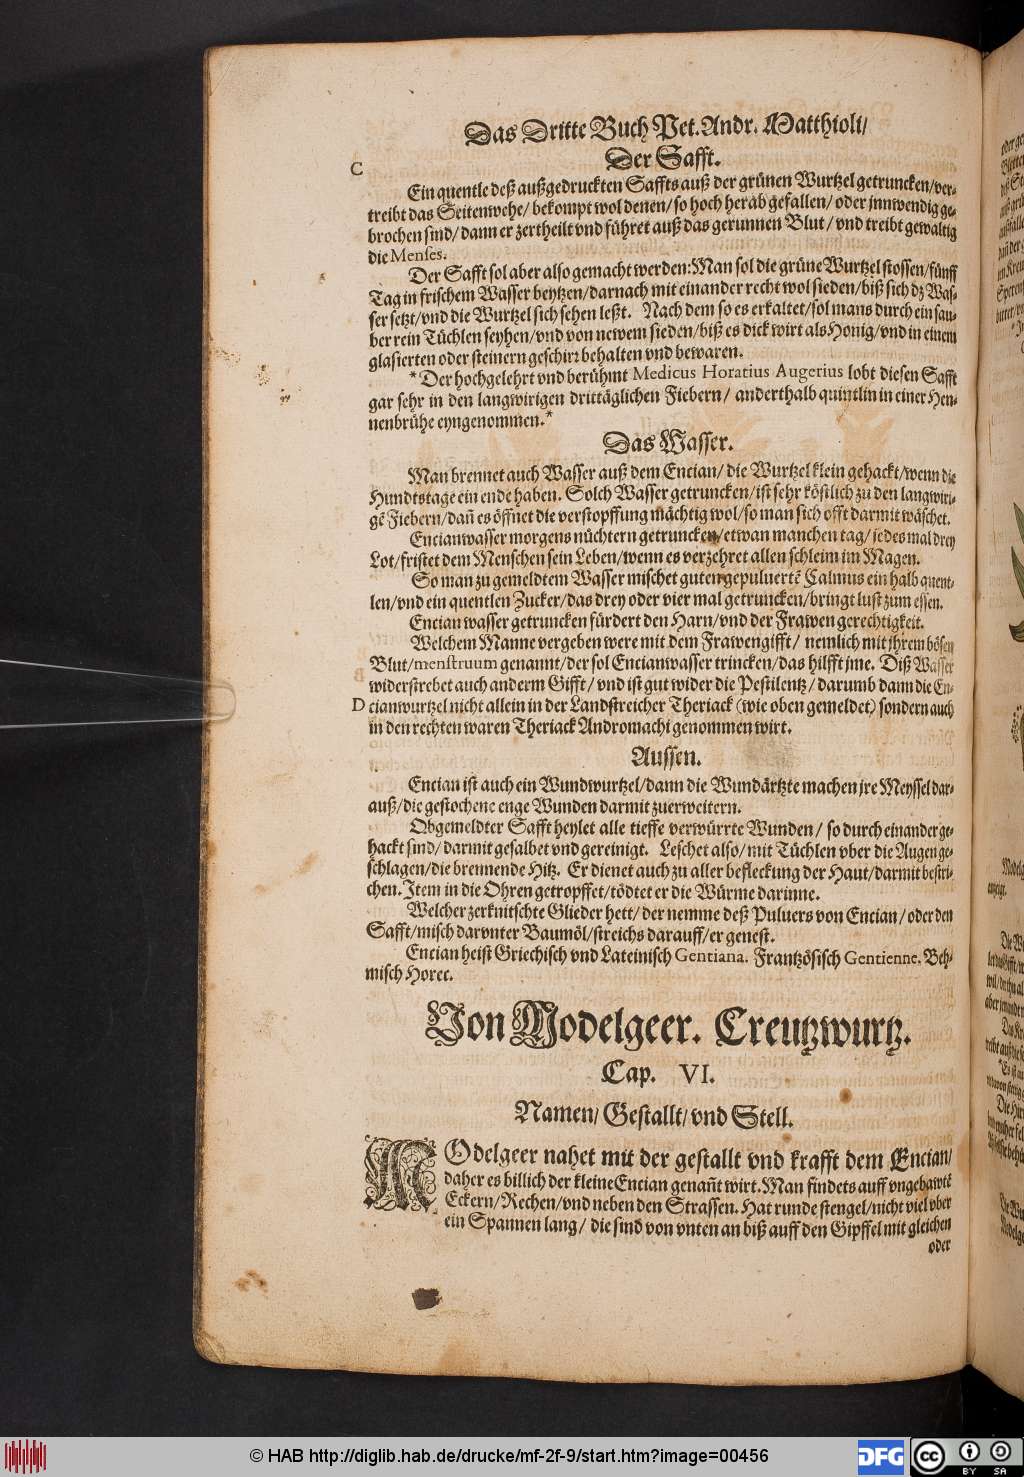 Das Dritte Buch Pet. Andr. Matthioli/
Der Safft.
C
Ein quentle deß außgedruckten Saffts auß der grünen Wurtzel getruncken/ver-
treibt das Seitenwehe/ bekompt wol denen/ so hoch herab gefallen/ oder jnnwendig ge-
brochen sind/ dann er zertheilt vnd führet auß das gerunnen Blut/ vnd treibt gewaltig
die Menses.
Der Safft sol aber also gemacht werden: Man sol die grüne Wurtzel stossen/fünff
Tag in frischem Wasser beytzen/darnach mit einander recht wol sieden/biß sich dz Was-
ser setzt/vnd die Wurtzel sich sehen leßt. Nach dem so es erkaltet/sol mans durch ein sau-
ber rein Tüchlen seyhen/vnd von newem sieden/biß es dick wirt als Honig/vnd in einem
glasierten oder steinern geschirr behalten vnd bewaren.
* Der hochgelehrt vnd berühmt Medicus Horatius Augerius lobt diesen Safft
gar sehr in den langwirigen drittäglichen Fiebern/ anderthalb quintlin in einer Hen-
nenbrühe eyngenommen.*
Das Wasser.
Man brennet auch Wasser auß dem Encian/ die Wurtzel klein gehackt/wenn die
Hundtstage ein ende haben. Solch Wasser getruncken/ist sehr köstlich zu den langwiri-
gē Fiebern/dañ es öffnet die verstopffung mächtig wol/so man sich offt darmit wäschet.
Encianwasser morgens nüchtern getruncken/etwan manchen tag/jedes mal drey
Lot/fristet dem Menschen sein Leben/wenn es verzehret allen schleim im Magen.
So man zu gemeldtem Wasser mischet guten gepuluertē Calmus ein halb quent-
len/vnd ein quentlen Zucker/das drey oder vier mal getruncken/bringt lust zum essen.
Encian wasser getruncken fürdert den Harn/vnd der Frawen gerechtigkeit.
Welchem Manne vergeben were mit dem Frawengifft/ nemlich mit ihrem bösen
Blut/menstruum genannt/der sol Encianwasser trincken/das hilfft jme. Diß Wasser
widerstrebet auch anderm Gifft/ vnd ist gut wider die Pestilentz/ darumb dann die En-
D cianwurtzel nicht allein in der Landstreicher Theriack (wie oben gemeldet) sondern auch
in den rechten waren Theriack Andromachi genommen wirt.
Aussen.
Encian ist auch ein Wundwurtzel/dann die Wundärtzte machen jre Meyssel dar-
auß/die gestochene enge Wunden darmit zuerweitern.
Obgemeldter Safft heylet alle tieffe verwürrte Wunden/ so durch einander ge-
hackt sind/ darmit gesalbet vnd gereinigt. Leschet also/ mit Tüchlen vber die Augen ge-
schlagen/die brennende Hitz. Er dienet auch zu aller befleckung der Haut/darmit bestri-
chen. Item in die Ohren getropffet/tödtet er die Würme darinne.
Welcher zerknitschte Glieder hett/ der nemme deß Puluers von Encian/ oder den
Safft/misch darvnter Baumöl/streichs darauff/er genest.
Encian heist Griechisch vnd Lateinisch Gentiana. Frantzösisch Gentienne. Beh-
misch Horec.
Von Modelgeer. Creutzwurtz.
Cap. VI.
Namen/ Gestallt/ vnd Stell.
MOdelgeer nahet mit der gestallt vnd krafft dem Encian/
daher es billich der kleine Encian genañt wirt. Man findets auff vngebawtē
Eckern/ Rechen/ vnd neben den Strassen. Hat runde stengel/nicht viel vber
ein Spannen lang/ die sind von vnten an biß auff den Gipffel mit gleichen
oder
© HAB http://diglib.hab.de/drucke/mf-2f-9/start.htm?image=00456
DFG
cc BY SA